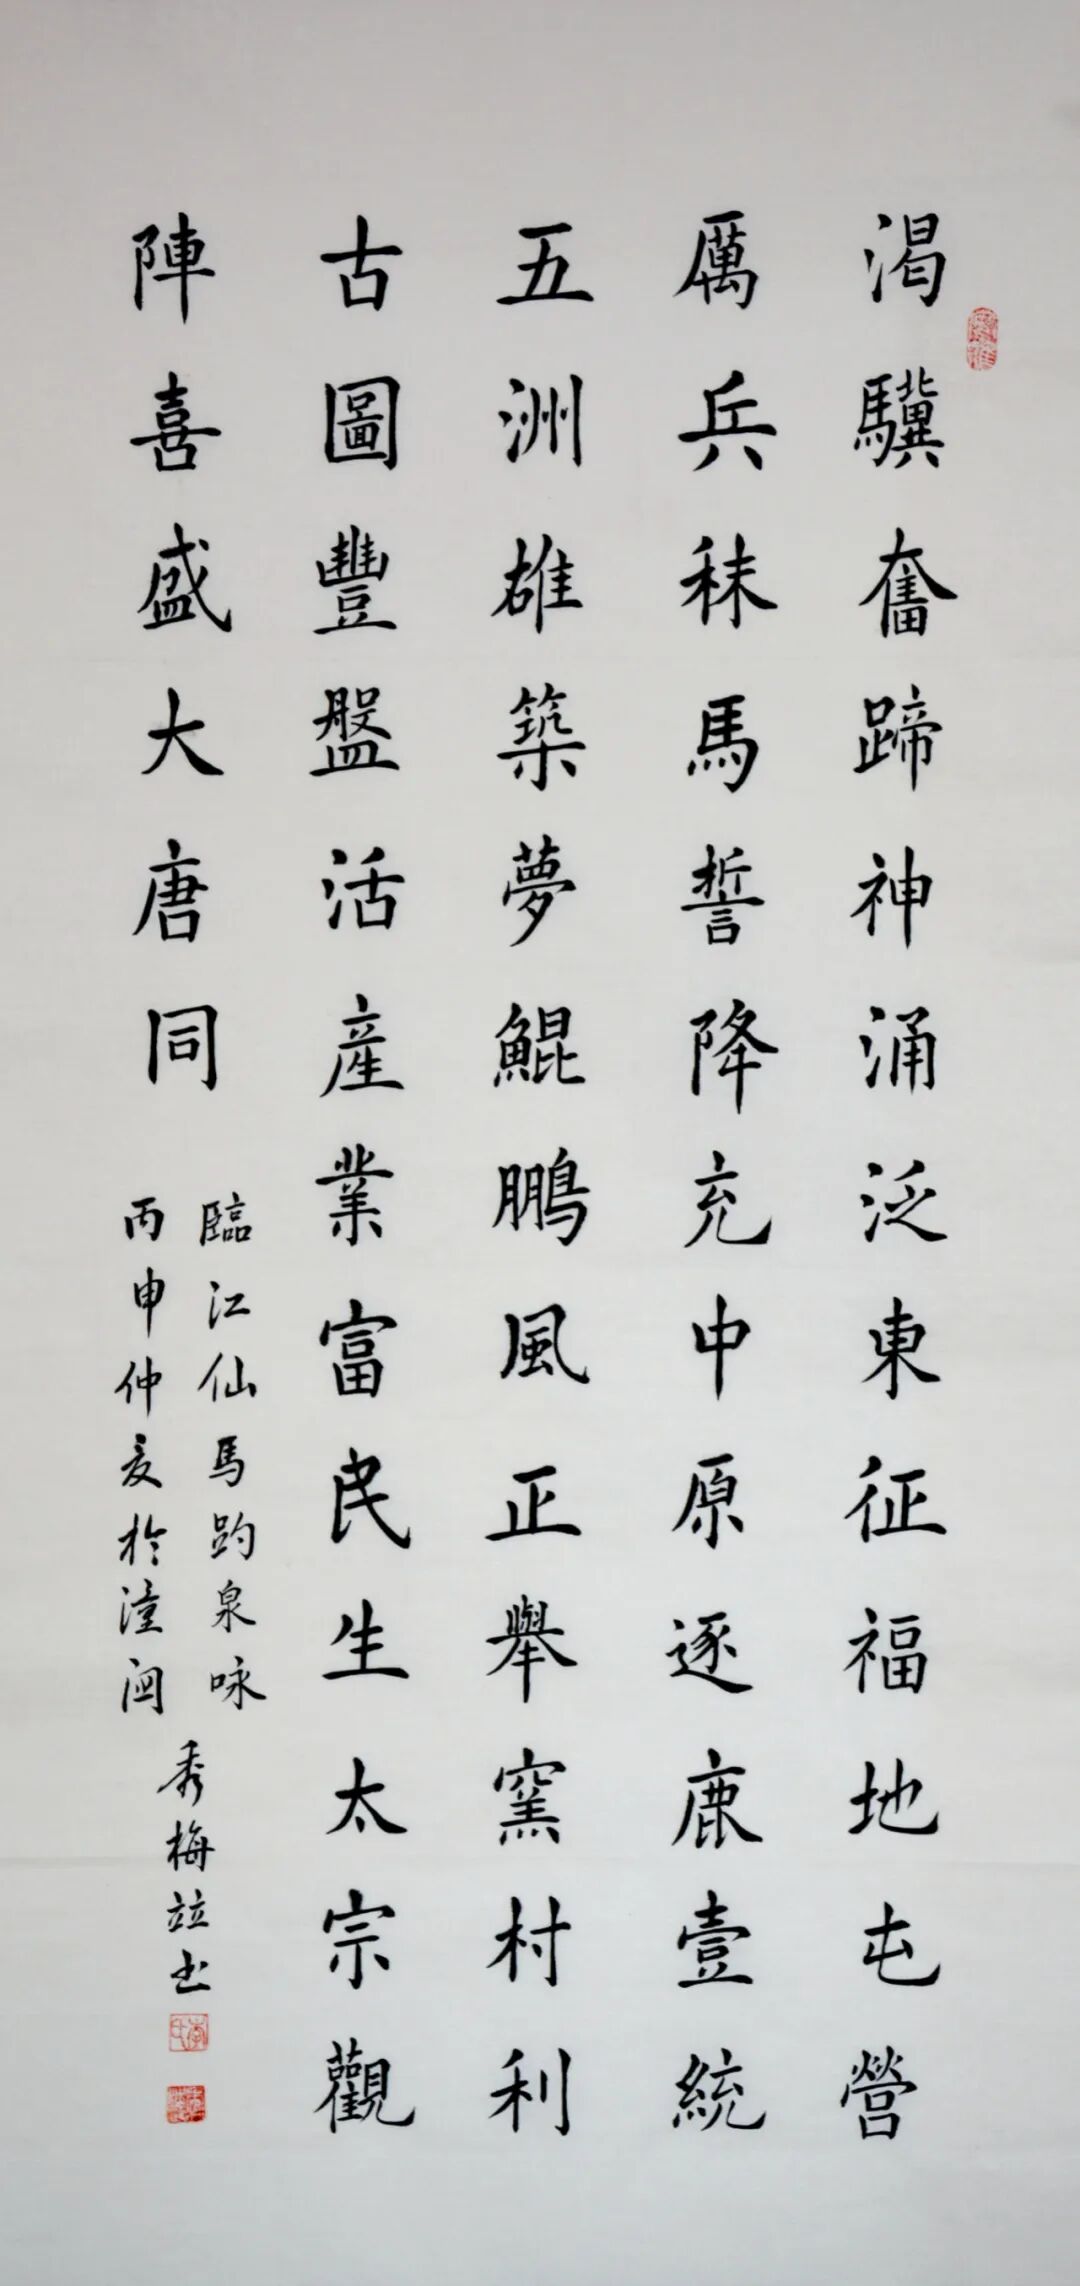 渴驥奮蹄神涌泛東征福地屯營
厲兵秣馬誓降充中原逐鹿壹統
五洲雄築夢鯤鵬風正舉窯村利
古圖豐盤活產業富民生太宗觀
陣喜盛大唐同
臨江仙馬趵泉咏
丙申仲夏於潼關
秀梅竝书